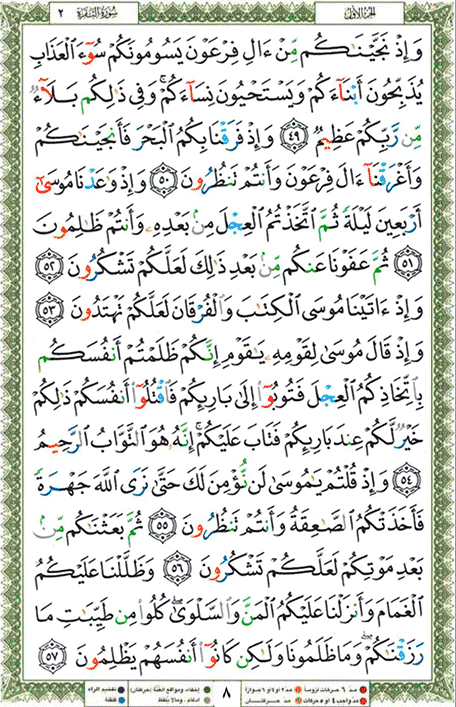 سورة البقرة ٢
الجزء الأول
وَإِذْ نَجَّيْنَٰكُم مِّنْ ءَالِ فِرْعَوْنَ يَسُومُونَكُمْ سُوٓءَ ٱلْعَذَابِ
يُذَبِّحُونَ أَبْنَآءَكُمْ وَيَسْتَحْيُونَ نِسَآءَكُمْ ۚ وَفِى ذَٰلِكُم بَلَآءٌ
مِّن رَّبِّكُمْ عَظِيمٌ ٤٩ وَإِذْ فَرَقْنَا بِكُمُ ٱلْبَحْرَ فَأَنجَيْنَٰكُمْ
وَأَغْرَقْنَآ ءَالَ فِرْعَوْنَ وَأَنتُمْ تَنظُرُونَ ٥٠ وَإِذْ وَٰعَدْنَا مُوسَىٰٓ
أَرْبَعِينَ لَيْلَةً ثُمَّ ٱتَّخَذْتُمُ ٱلْعِجْلَ مِنۢ بَعْدِهِۦ وَأَنتُمْ ظَٰلِمُونَ
٥١ ثُمَّ عَفَوْنَا عَنكُم مِّنۢ بَعْدِ ذَٰلِكَ لَعَلَّكُمْ تَشْكُرُونَ ٥٢
وَإِذْ ءَاتَيْنَا مُوسَى ٱلْكِتَٰبَ وَٱلْفُرْقَانَ لَعَلَّكُمْ تَهْتَدُونَ ٥٣
وَإِذْ قَالَ مُوسَىٰ لِقَوْمِهِۦ يَٰقَوْمِ إِنَّكُمْ ظَلَمْتُمْ أَنفُسَكُم
بِٱتِّخَاذِكُمُ ٱلْعِجْلَ فَتُوبُوٓا۟ إِلَىٰ بَارِئِكُمْ فَٱقْتُلُوٓا۟ أَنفُسَكُمْ ذَٰلِكُمْ
خَيْرٌ لَّكُمْ عِندَ بَارِئِكُمْ فَتَابَ عَلَيْكُمْ ۚ إِنَّهُۥ هُوَ ٱلتَّوَّابُ ٱلرَّحِيمُ
٥٤ وَإِذْ قُلْتُمْ يَٰمُوسَىٰ لَن نُّؤْمِنَ لَكَ حَتَّىٰ نَرَى ٱللَّهَ جَهْرَةً
فَأَخَذَتْكُمُ ٱلصَّٰعِقَةُ وَأَنتُمْ تَنظُرُونَ ٥٥ ثُمَّ بَعَثْنَٰكُم مِّنۢ
بَعْدِ مَوْتِكُمْ لَعَلَّكُمْ تَشْكُرُونَ ٥٦ وَظَلَّلْنَا عَلَيْكُمُ
ٱلْغَمَامَ وَأَنزَلْنَا عَلَيْكُمُ ٱلْمَنَّ وَٱلسَّلْوَىٰ ۖ كُلُوا۟ مِن طَيِّبَٰتِ مَا
رَزَقْنَٰكُمْ ۖ وَمَا ظَلَمُونَا وَلَٰكِن كَانُوٓا۟ أَنفُسَهُمْ يَظْلِمُونَ ٥٧
مد ٦ حركات لزوماً مد ٢ أو ٤ أو ٦ جوازاً
مد واجب ٤ أو ٥ حركات مد حركتان
٨
إخفاء، ومواقع الغنة (حركتان) تفخيم الراء
إدغام، وما لا يلفظ قلقلة